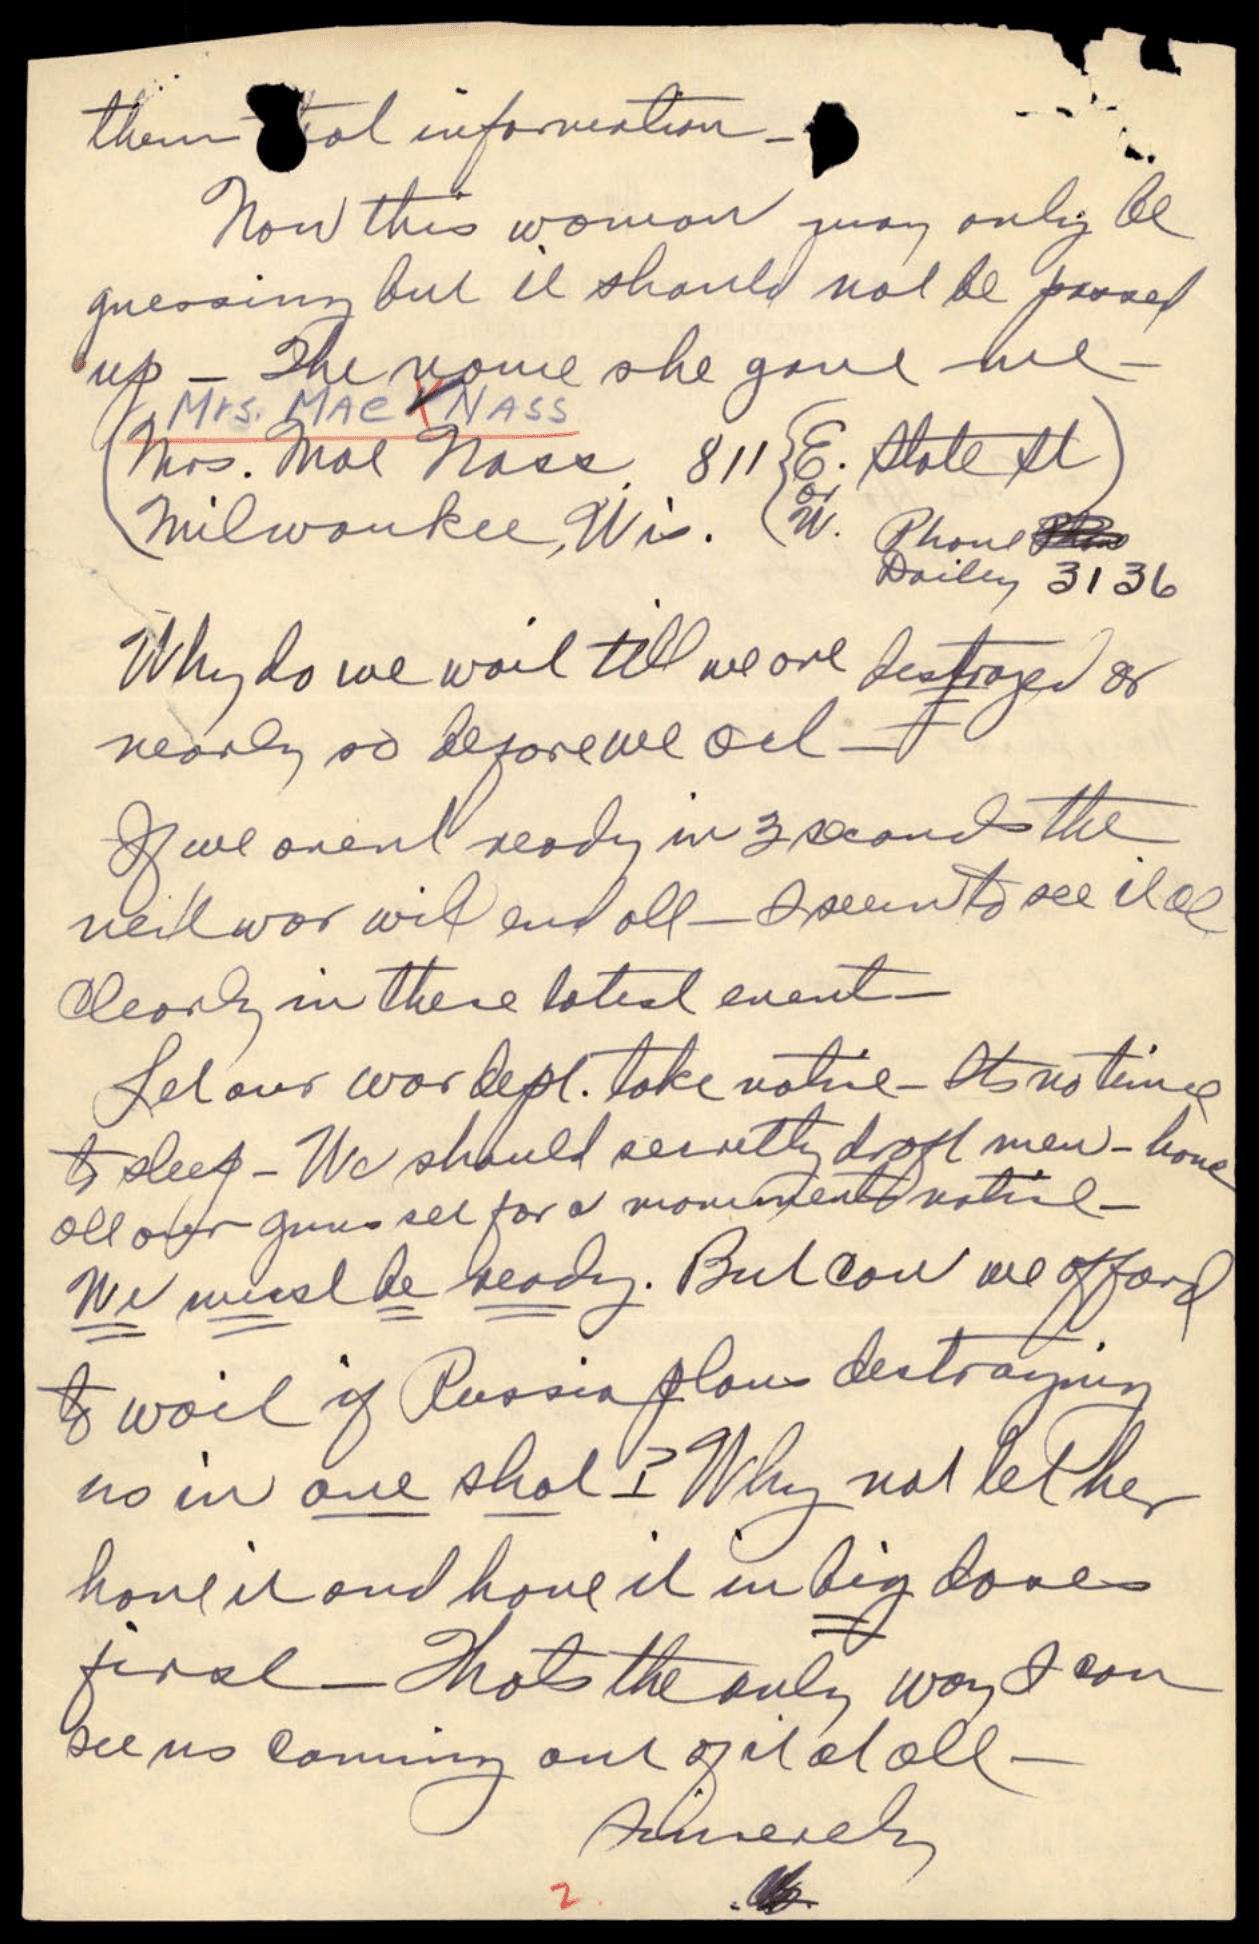 them that information –
Now this woman may only be
guessing but it should not be passed
up – The name she gave me –
Mrs. MAE NASS
(Mrs. Mae Nass 811 { E. State St )
or
(Milwaukee, Wis. ( W. Phone
Dailey 3136
Why do we wait till we are destroyed or
nearly so before we act –
If we arent ready in 3 seconds the
next war will end all – I seem to see it all
clearly in these latest event –
Let our war dept. take notice – Its no time
to sleep – We should secretly draft men – have
all our guns set for a moments notice –
We must be ready. But can we afford
to wait if Russia plans destroying
us in one shot? Why not let her
have it and have it in big doses
first – Thats the only way I can
see us coming out of it at all –
Sincerely
2.